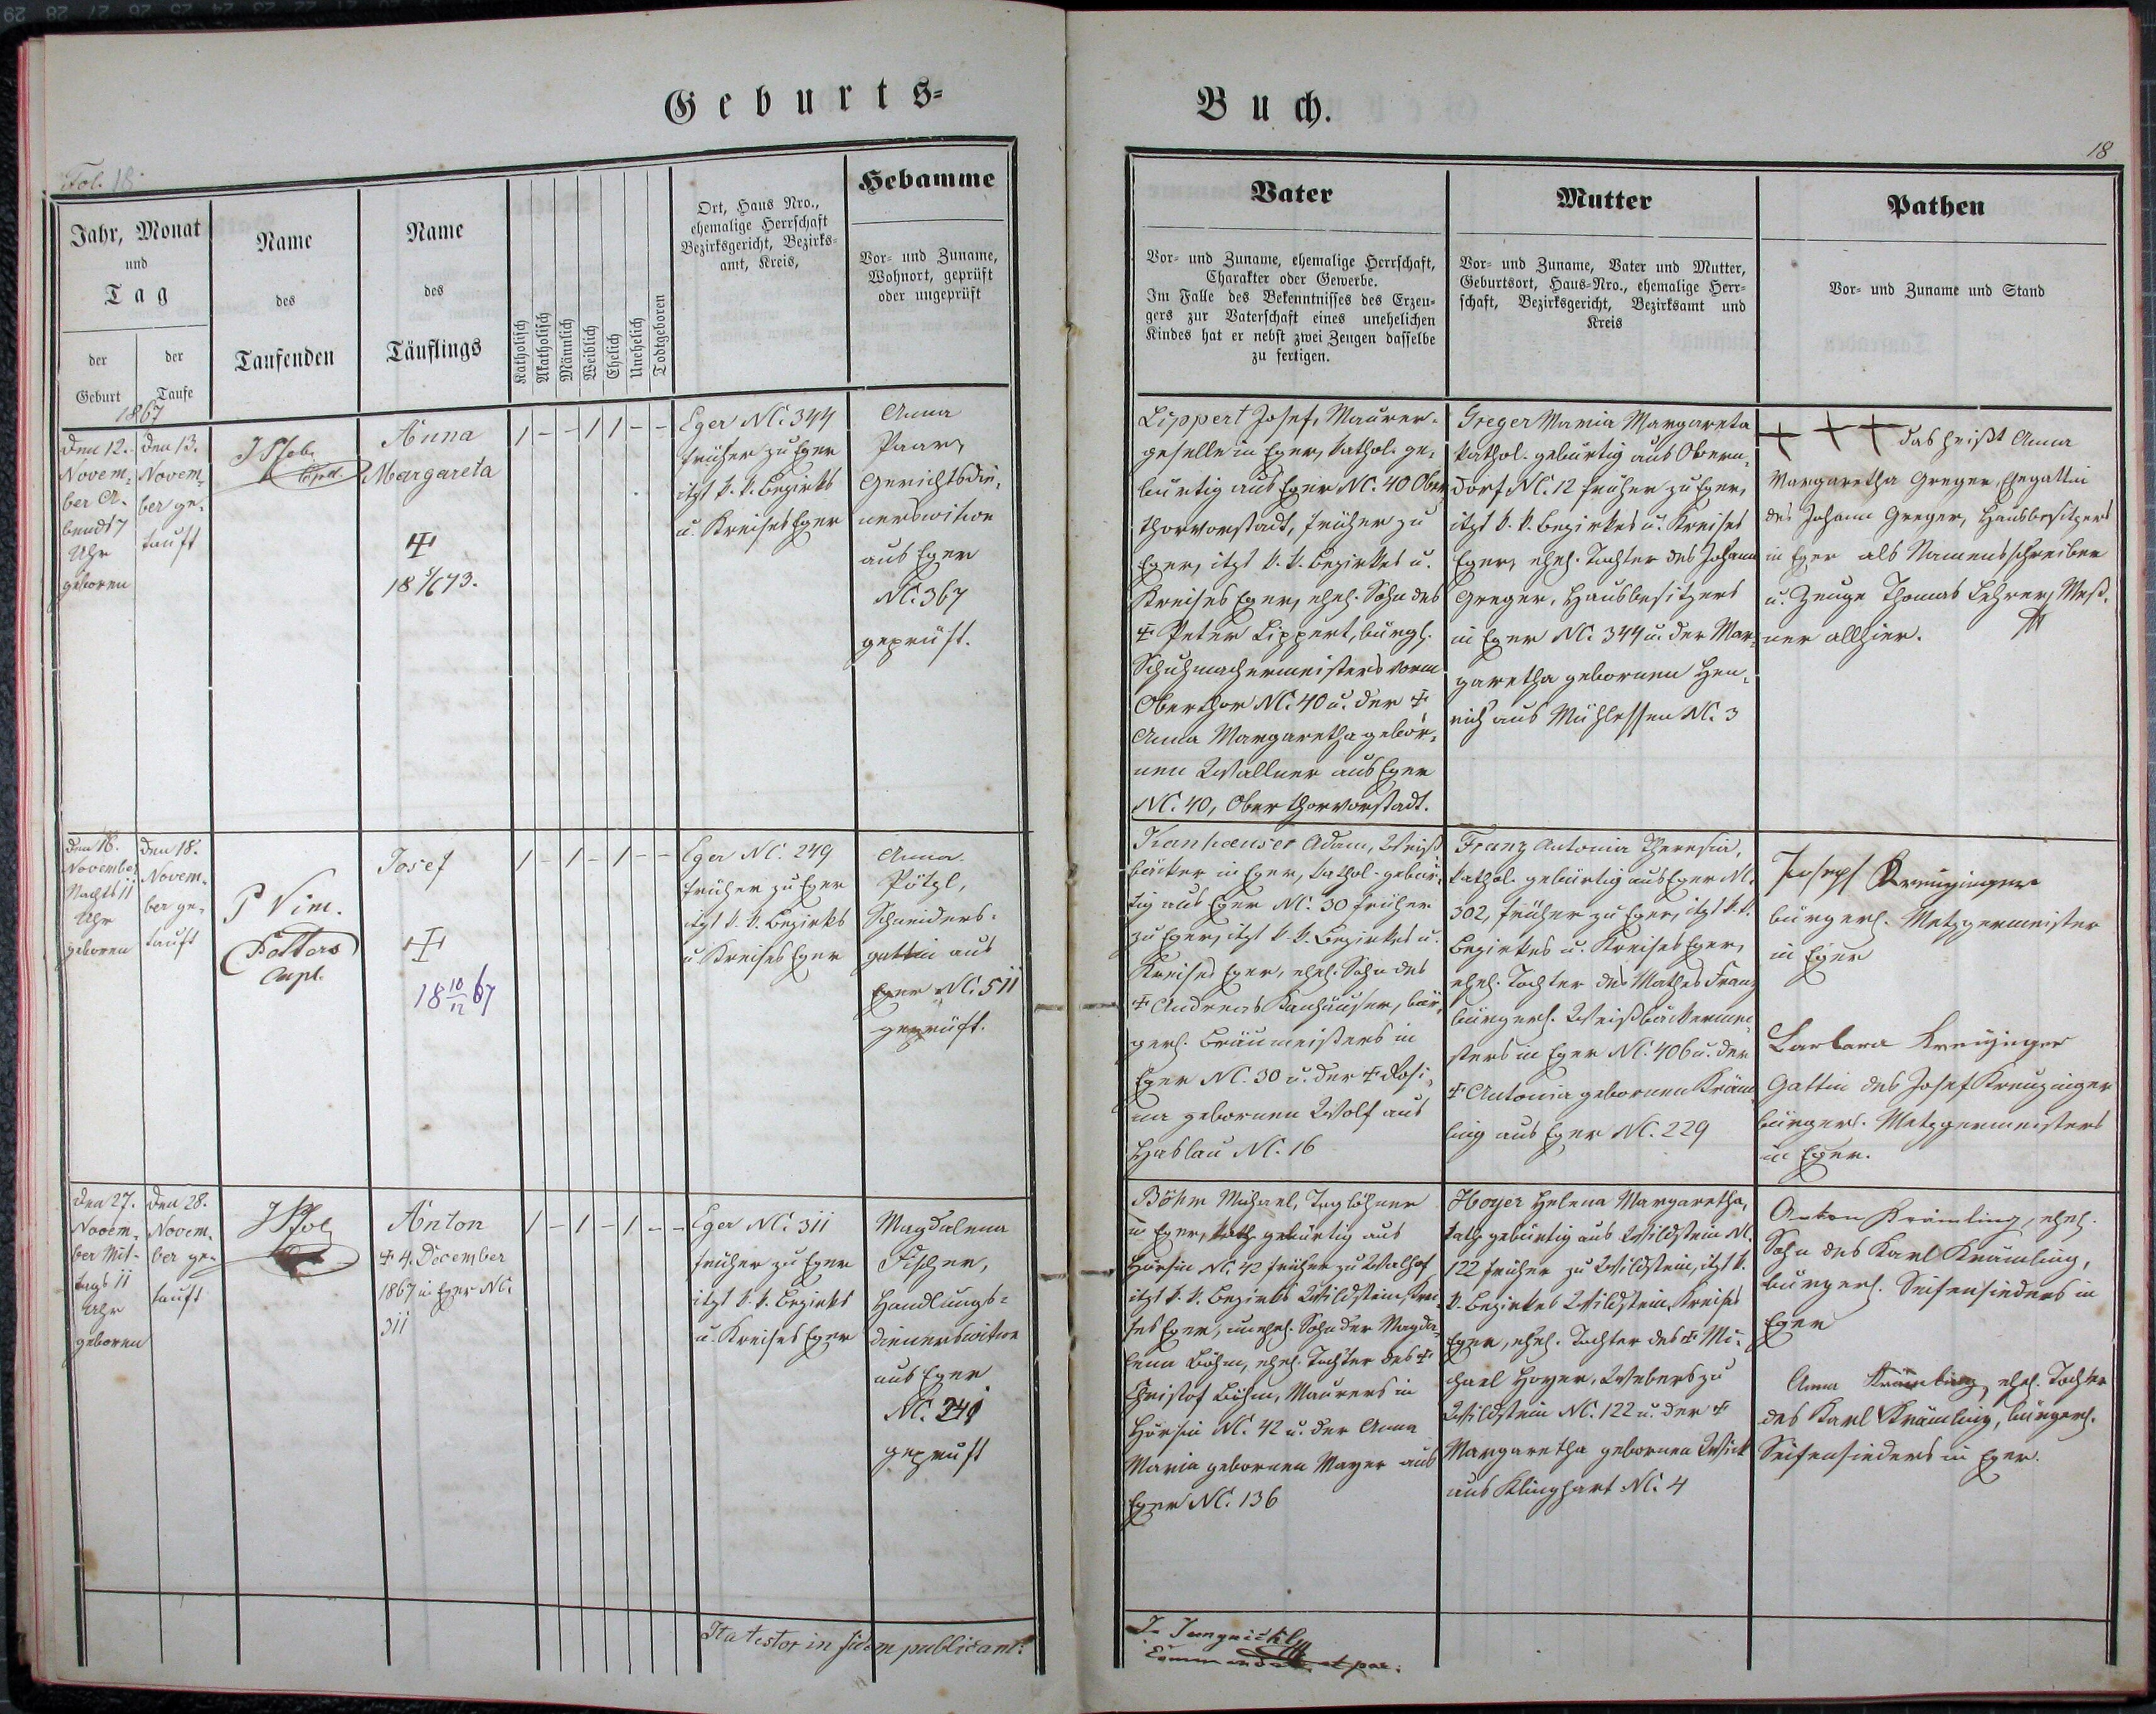 Geburts=
Buch.
Fol. 18.
18
Jahr, Monat
und
Tag
der
Geburt
der
Taufe
Name
des
Taufenden
Name
des
Täuflings
Katholisch
Akatholisch
Männlich
Weiblich
Ehelich
Unehelich
Todtgeboren
Ort, Haus Nro.,
ehemalige Herrschaft
Bezirksgericht, Bezirks-
amt, Kreis,
Hebamme
Vor- und Zuname,
Wohnort, geprüft
oder ungeprüft
Vater
Vor- und Zuname, ehemalige Herrschaft,
Charakter oder Gewerbe.
Im Falle des Bekenntnisses des Erzeu-
gers zur Vaterschaft eines unehelichen
Kindes hat er nebst zwei Zeugen dasselbe
zu fertigen.
Mutter
Vor- und Zuname, Vater und Mutter,
Geburtsort, Haus-Nro., ehemalige Herr-
schaft, Bezirksgericht, Bezirksamt und
Kreis
Pathen
Vor- und Zuname und Stand
1867
Den 12.
Novem-
ber A-
bends 7
Uhr
geboren
Den 13.
Novem-
ber ge-
tauft
Anna
Margareta
1 – – 1 1 – –
Eger NC. 344
früher zu Eger
itzt k. k. Bezirks
u. Kreises Eger
Anna
Paar,
Gerichtsdie-
nerswitwe
aus Eger
NC. 367
geprüft.
Lippert Josef, Maurer-
geselle in Eger, kathol. ge-
bürtig aus Eger NC. 40 Ober
thorvorstadt, früher zu
Eger, itzt k. k. Bezirkes u.
Kreises Eger, ehel. Sohn des
† Peter Lippert, bürgl.
Schuhmachermeisters vorm
Oberthor NC. 40 u. der †
Anna Margaretha gebor-
nen Wallner aus Eger
NC. 40, Oberthorvorstadt.
Greger Maria Margareta
kathol. gebürtig aus Obern-
dorf NC. 12 früher zu Eger,
itzt k. k. Bezirkes u. Kreises
Eger, ehel. Tochter des Johann
Greger, Hausbesitzers
in Eger NC. 344 u. der Mar-
garetha gebornen Hen-
rich aus Mühlessen NC. 3
† † † das heißt Anna
Margaretha Greger, Ehegattin
des Johann Greger, Hausbesitzers
in Eger als Namensschreiber
u. Zeuge Thomas Lehrer, Meß-
ner allhier.
Den 16.
November
Nachts 11
Uhr
geboren
Den 18.
Novem-
ber ge-
tauft
Josef
†
18 10/12 67
1 – 1 – 1 – –
Eger NC. 249
früher zu Eger
itzt k. k. Bezirks
u. Kreises Eger
Anna
Pötzl,
Schneiders-
gattin aus
Eger NC. 511
geprüft.
Kanhæuser Adam, Weiß
bäcker in Eger, kathol. gebür-
tig aus Eger NC. 30 früher
zu Eger, itzt k. k. Bezirkes u.
Kreises Eger, ehel. Sohn des
† Andreas Kanhäuser, bür-
gerl. Bräumeisters in
Eger NC. 30 u. der † Rosi-
na gebornen Wolf aus
Haslau NC. 16
Franz Antonia Theresia,
kathol. gebürtig aus Eger NC.
302, früher zu Eger, itzt k. k.
Bezirkes u. Kreises Eger,
ehel. Tochter des Mathes Franz
bürgerl. Weißbäckermei-
sters in Eger NC. 406 u. der
† Antonia gebornen Kräm-
ling aus Eger NC. 229
Joseph Kreuzinger
bürgerl. Metzgermeister
in Eger
Barbara Kreuzinger
Gattin des Josef Kreuzinger
bürgerl. Metzgermeisters
in Eger.
Den 27.
Novem-
ber Mit-
tags 11
Uhr
geboren
Den 28.
Novem-
ber ge-
tauft
Anton
† 4. December
1867 in Eger NC.
311
1 – 1 – 1 – –
Eger NC. 311
früher zu Eger
itzt k. k. Bezirks
u. Kreises Eger
Magdalena
Fischer,
Handlungs-
dienerswitwe
aus Eger
geprüft
Böhm Michael, Taglöhner
in Eger, kath. gebürtig aus
Hörsin NC. 42 früher zu Walhof
itzt k. k. Bezirks Wildstein Krei-
ses Eger, unehel. Sohn der Magda-
lena Böhm, ehel. Tochter des †
Christof Böhm, Maurers in
Hörsin NC. 42 u. der Anna
Maria gebornen Mayer aus
Eger NC. 136
Hoyer Helena Margaretha,
kath. gebürtig aus Wildstein NC.
122 früher zu Wildstein, itzt k.
k. Bezirkes Wildstein Kreises
Eger, ehel. Tochter des † Mi-
chael Hoyer, Webers zu
Wildstein NC. 122 u. der †
Margaretha gebornen Wick
aus Klinghart NC. 4
Anton Krämling, ehel.
Sohn des Karl Krämling,
bürgerl. Seifensieders in
Eger
Anna Krämling, ehel. Tochter
des Karl Krämling, bürgerl.
Seifensieders in Eger.
Ita testor in fidem publicam: